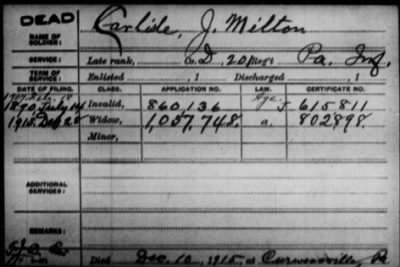 DEAD
NAME OF SOLDIER:
Carlisle, J. Milton
SERVICE:
Late rank, Co. D, 201 Reg't Pa. Inf.
TERM OF SERVICE:
Enlisted , 1 Discharged , 1
DATE OF FILING. CLASS. APPLICATION NO. LAW. CERTIFICATE NO.
1890, July 14 Invalid, 860,136 J 615811
1915, Dec 28 Widow, 1,057,748. a. 802898.
Minor,
ADDITIONAL SERVICES:
REMARKS:
Died Dec. 10, 1915, at Curwensville, Pa